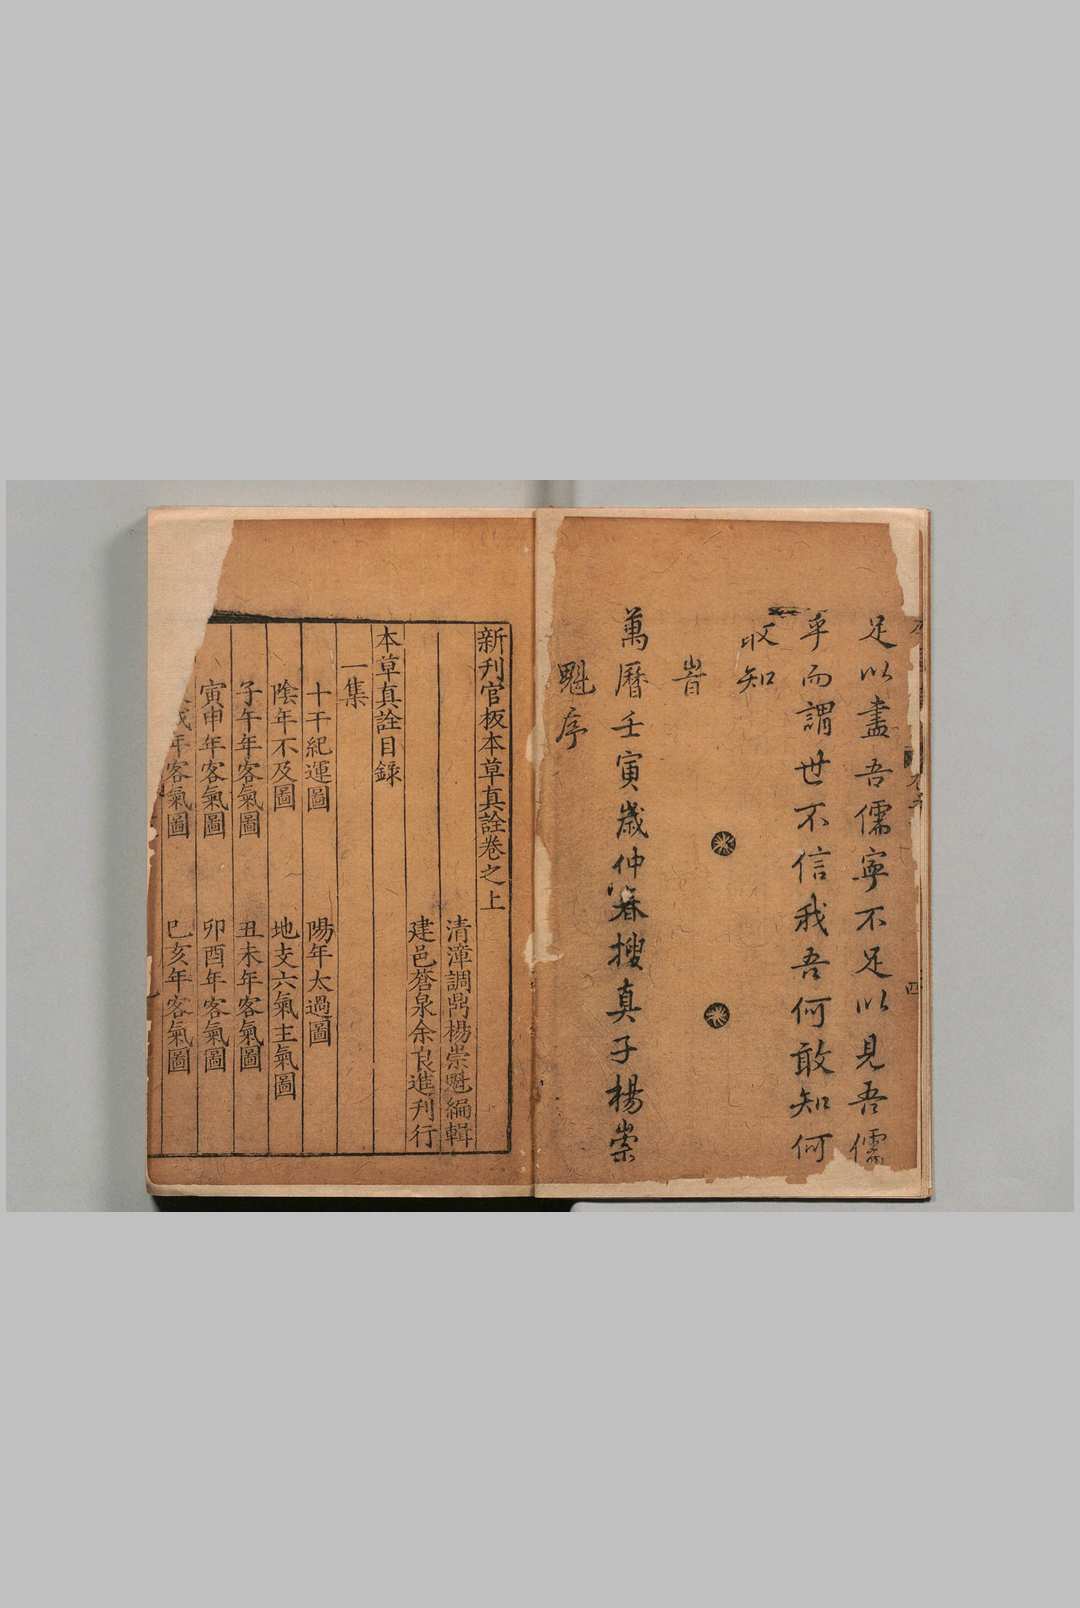 足以盡吾儒寧不足以見吾儒
乎而謂世不信我吾何敢知何
敢知
旹
萬曆壬寅歲仲春搜真子楊崇
魁序
新刊官板本草真詮卷之上
清漳調鼎楊崇魁編輯
建邑蒼泉余良進刊行
本草真詮目錄
一集
十干紀運圖 陽年太過圖
陰年不及圖 地支六氣主氣圖
子午年客氣圖 丑未年客氣圖
寅申年客氣圖 卯酉年客氣圖
戌年客氣圖 巳亥年客氣圖